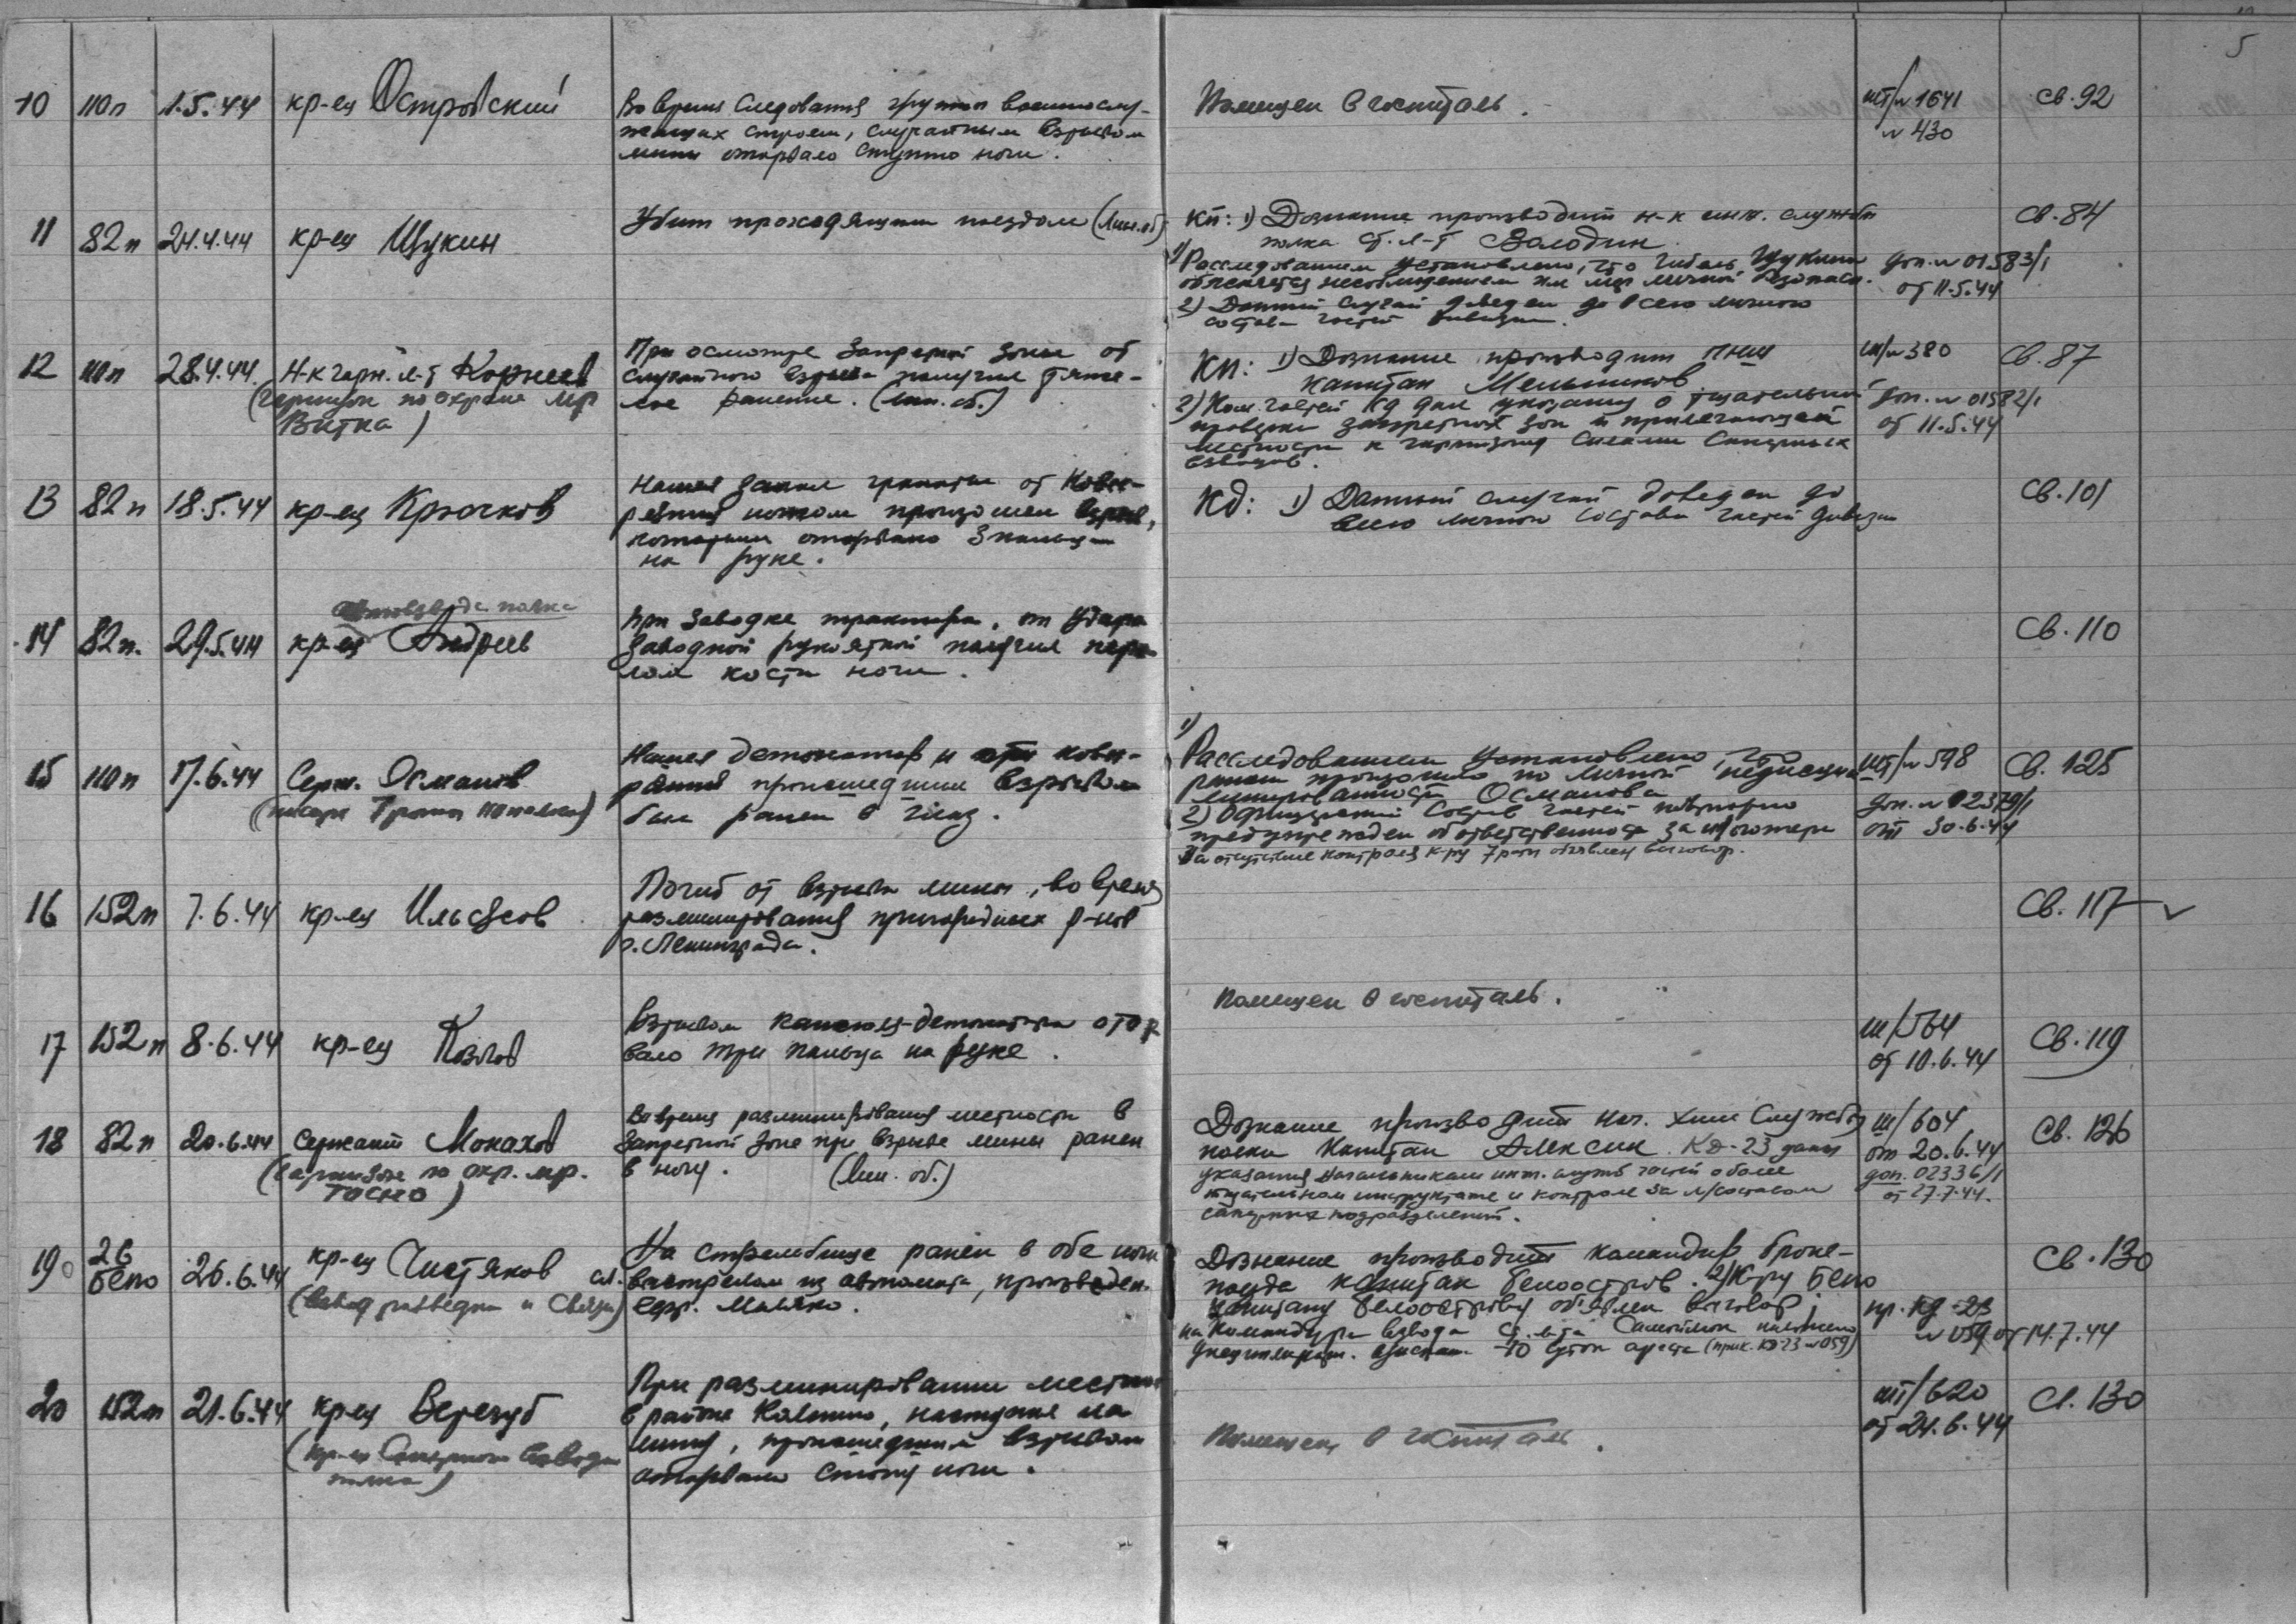 5
10 110п 1.5.44 кр-ец Островский
Во время следования группы военнослу-
жащих строем, случайным взрывом
мины оторвало ступню ноги.
Помещен в госпиталь.
шт/№ 1641
№ 430
св. 92
11 82п 24.4.44 кр-ец Щукин
Убит проходящим поездом (Лин.об)
КП: 1) Дознание производит н-к инж. службы
полка ст. л-т Володин
1) Расследованием установлено, что гибель Щукина
объясняется несоблюдением им мер личной безопасн.
2) Данный случай доведен до всего личного
состава частей дивизии.
св. 84
доп. № 01583/1
от 11.5.44
12 110п 28.4.44. Н-к гарн. л-т Корнеев
(гарнизон по охране мр
Вытка)
При осмотре запретной зоны от
случайного взрыва получил тяже-
лое ранение. (Лин. об.)
КП: 1) Дознание производит ПНШ
капитан Мельников
2) Ком. частей КД дал указания о тщательной
проверке запретных зон и прилегающей
местности к гарнизону силами саперных
взводов.
ш/№ 380
доп. № 01582/1
от 11.5.44
св. 87
13 82п 18.5.44 кр-ец Крючков
Нашел запал гранаты от ковы-
ряния ножом произошел взрыв,
которым оторвано 3 пальца
на руке.
КД: 1) Данный случай доведен до
всего личного состава частей дивизии
св. 101
автовзвода полка
14 82п. 29.5.44 кр-ец Андреев
При заводке трактора, от удара
заводной рукояткой получил пере-
лом кости ноги.
св. 110
15 110п 17.6.44 Серж. Османов
(писарь 7 роты 110 полка)
Нашел детонатор и при ковы-
рянии происшедшим взрывом
был ранен в глаз.
1) Расследованием установлено, что
ранение произошло по личной недисцип-
линированности Османова
2) Офицерский состав частей повторно
предупрежден об ответственности за
За отсутствие контроля к-ру 7 роты объявлен выговор.
шт/№ 598
доп. № 02379/1
от 30.6.44
св. 125
16 152п 7.6.44 кр-ец Ильясов
Погиб от взрыва мины, во время
разминирования пригородных р-нов
г. Ленинграда.
св. 117
17 152п 8.6.44 кр-ец Козлов
Взрывом капсюля-детонатора отор
вало три пальца на руке.
Помещен в госпиталь.
ш/564
от 10.6.44
св. 119
18 82п 20.6.44 Сержант Монахов
(гарнизон по охр. мр.
Тосно)
Во время разминирования местности в
запретной зоне при взрыве мины ранен
в ногу. (Лин. об.)
Дознание производит нач. хим службы
полка капитан Алексин. КД-23 даны
указания начальникам инж. служб частей о более
тщательном инструктаже и контроле за л/составом
саперных подразделений.
ш/604
от 20.6.44
доп. 02336/1
от 27.7.44.
св. 126
19 26 бепо 26.6.44 кр-ец Чистяков
(взвод разведки и связи)
На стрельбище ранен в обе ноги
выстрелом из автомата, произведен.
ефр. Малько.
Дознание производит командир броне-
поезда капитан Белоостров. 2) К-ру бепо
капитану Белоострову объявлен выговор;
на командира взвода ст. л-та наложено
дисциплинарн. взыскан. 10 суток ареста (прик. КД-23 № 059)
пр. КД-23
№ 059 от 14.7.44
св. 130
20 152п 21.6.44 кр-ец Верезуб
(кр-ец саперного взвода
полка)
При разминировании местн.
в районе Колпино, наступил на
мину, происшедшим взрывом
оторвало стопу ноги.
Помещен в госпиталь.
шт/620
от 21.6.44
св. 130